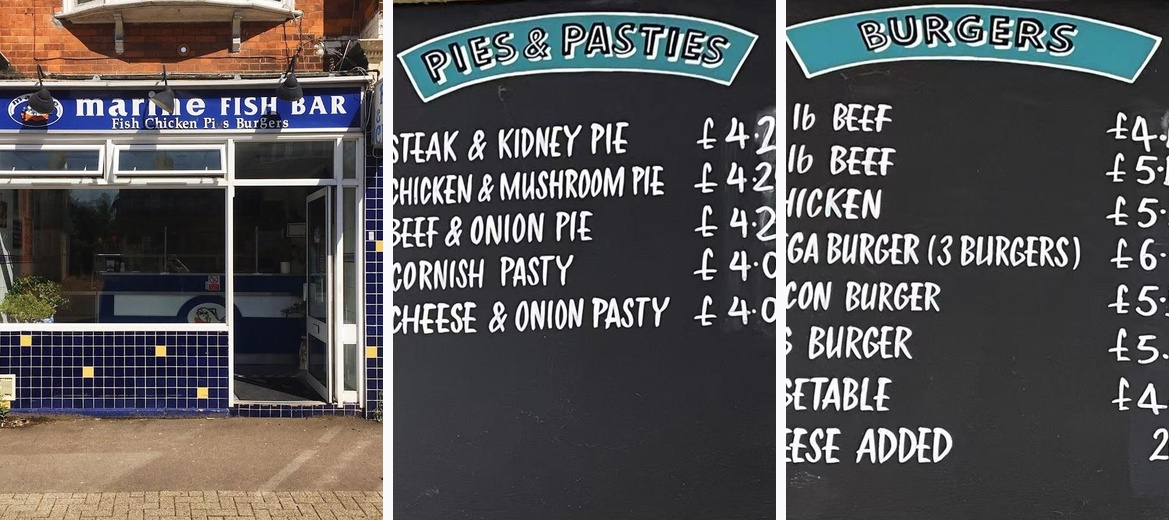 marine FISH BAR
Fish Chicken Pi s Burgers
PIES & PASTIES
STEAK & KIDNEY PIE £4.2
CHICKEN & MUSHROOM PIE £4.2
BEEF & ONION PIE £4.2
CORNISH PASTY £4.0
CHEESE & ONION PASTY £4.0
BURGERS
lb BEEF £4.
lb BEEF £5.
HICKEN £5.
GA BURGER (3 BURGERS) £6.
CON BURGER £5.
S BURGER £5.
GETABLE £4
EESE ADDED 2